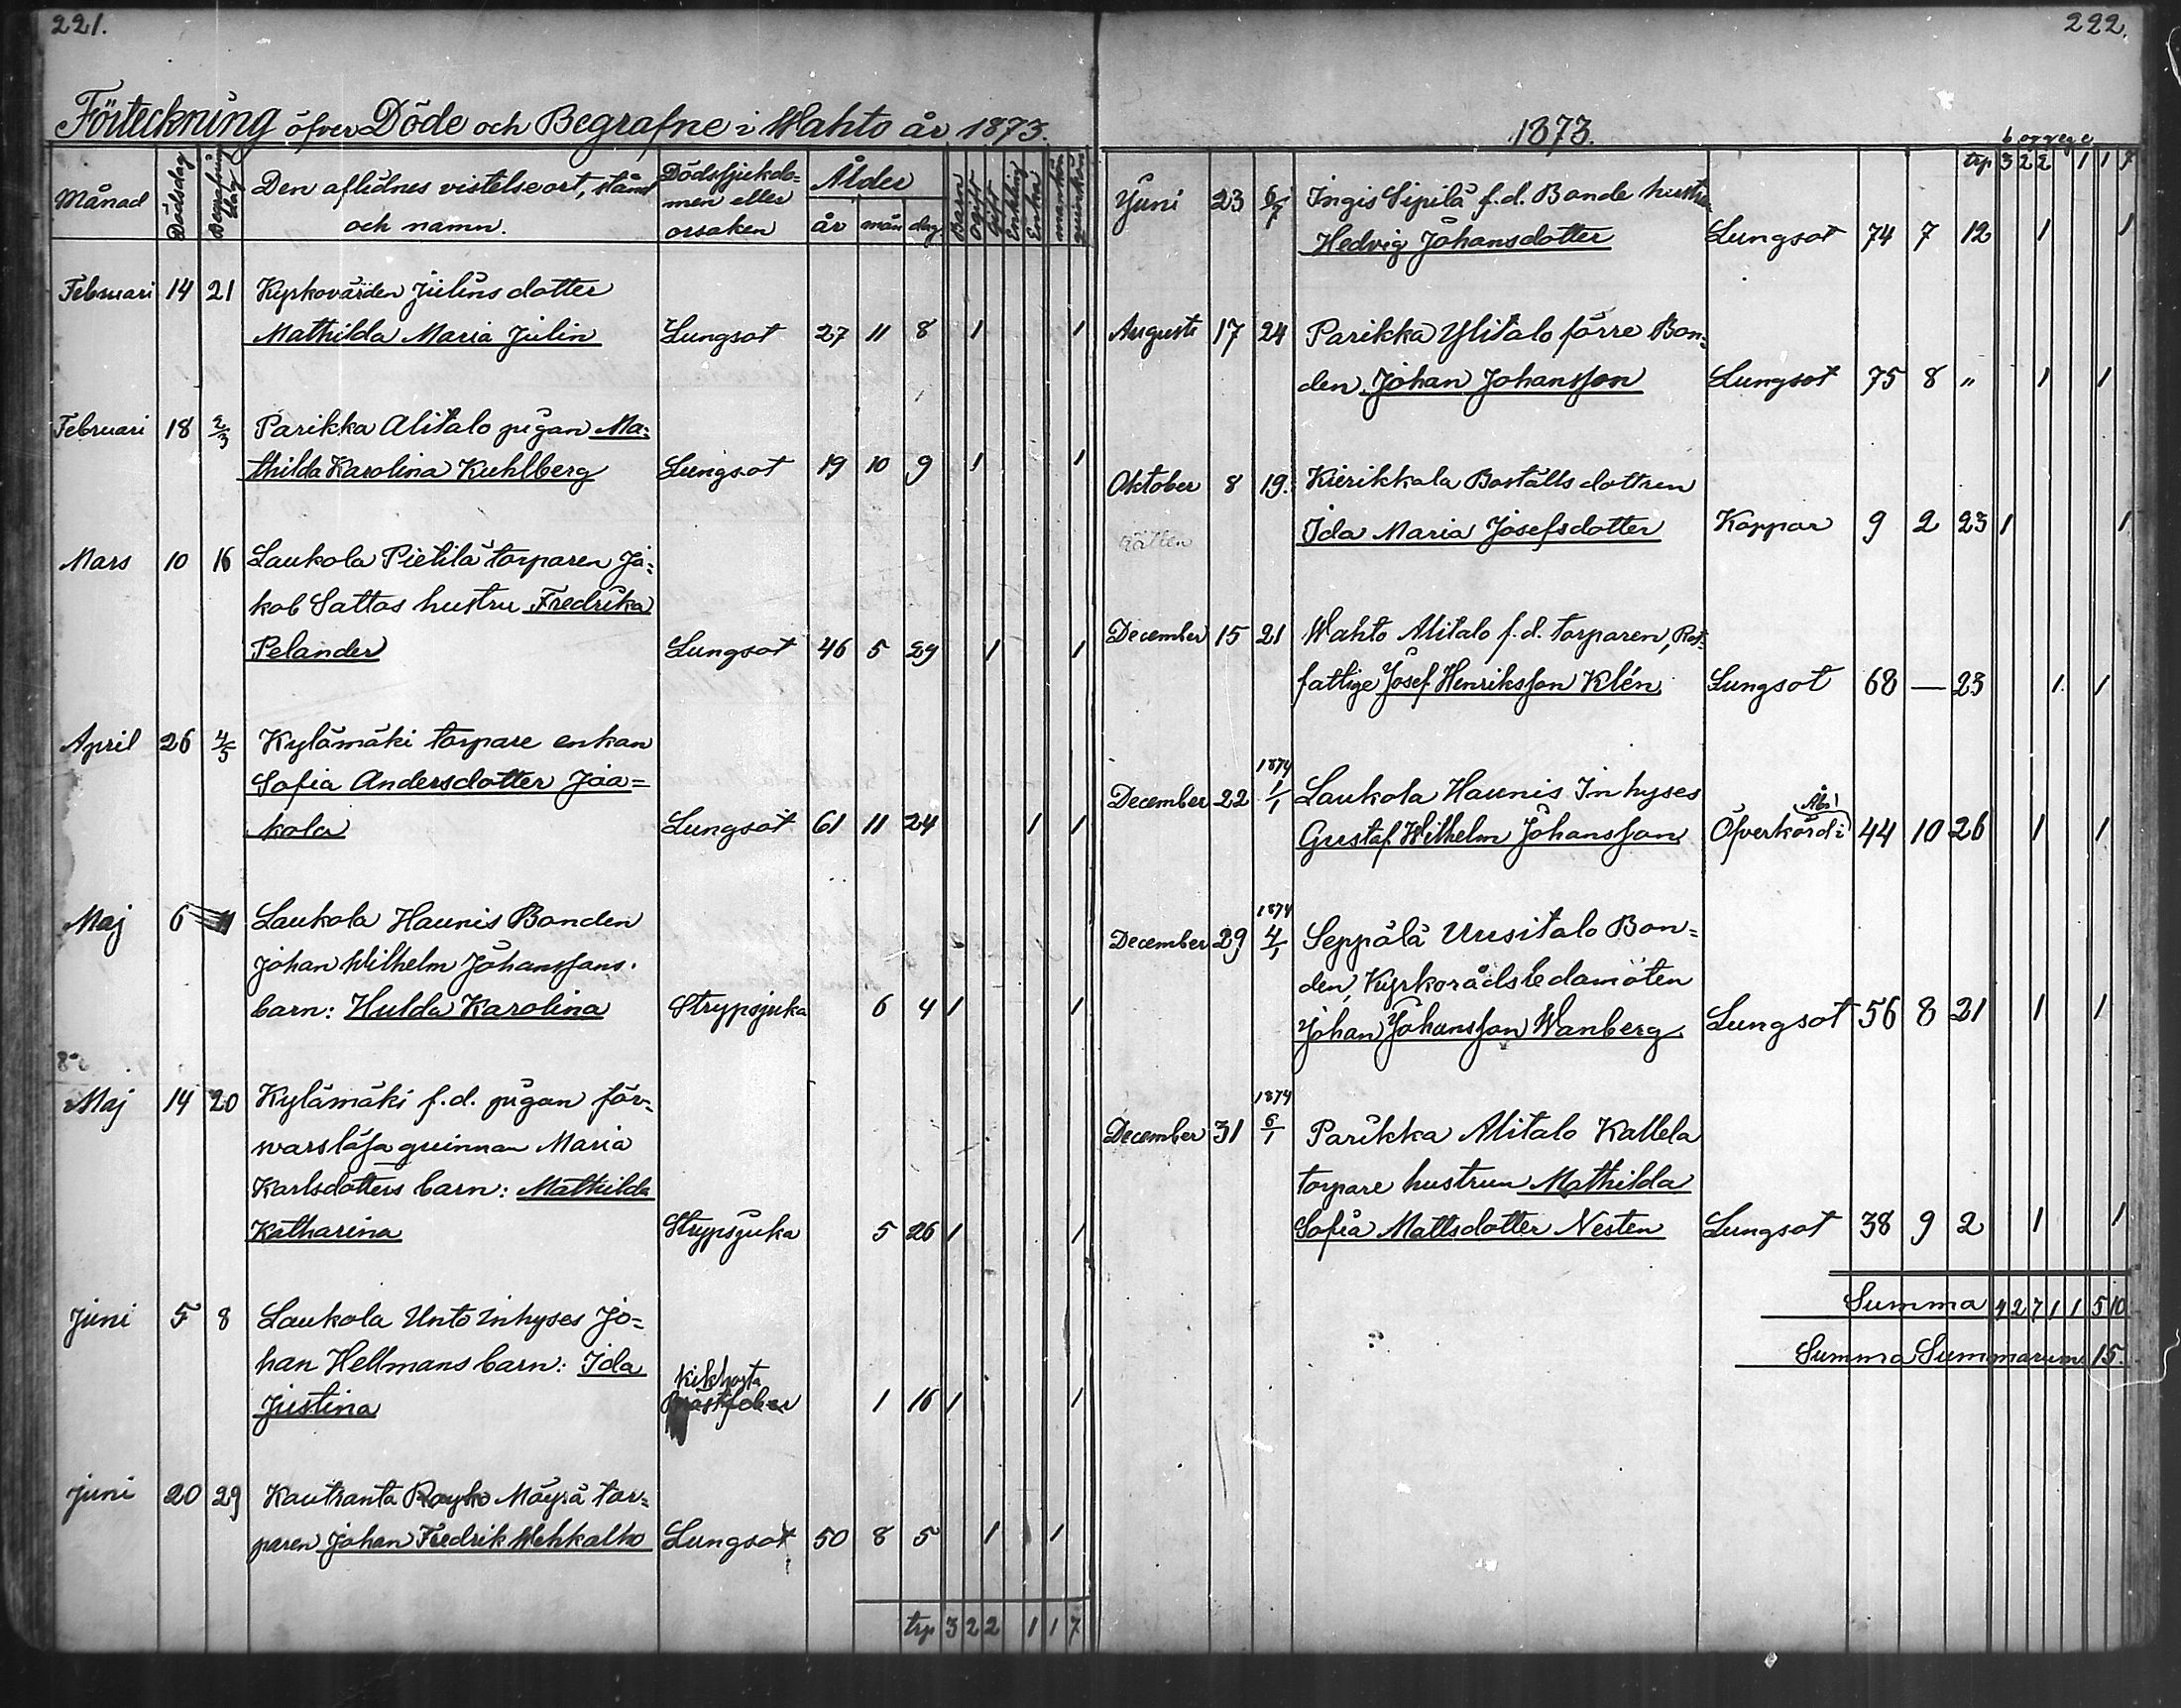 221.
Förteckning öfver Döde och Begrafne i Wahto år 1873.
Månad Dödsdag Begrafningsdag Den aflidnes vistelseort, stånd och namn. Dödssjukdomen eller orsaken Ålder år mån dag Barn Ogift Gift Enkling Enka mankön quinkön
Februari 14 21 Kyrkovärden Julins dotter
Mathilda Maria Julin Lungsot 27 11 8 1 1
Februari 18 2/3 Parikka Alitalo pigan Ma=
thilda Karolina Kuhlberg Lungsot 19 10 9 1 1
Mars 10 16 Laukola Pietilä torparen Ja=
kob Sattas hustru Fredrika
Pelander Lungsot 46 5 29 1 1
April 26 4/5 Kylämäki torpare enkan
Sofia Andersdotter Jaa=
kola Lungsot 61 11 24 1 1
Maj 6 11 Laukola Haunis Bonden
Johan Wilhelm Johanssons
barn: Hulda Karolina Strypsjuka 6 4 1 1
Maj 14 20 Kylämäki f.d. pigan för=
warslösa quinnan Maria
Karlsdotters barn: Mathilda
Katharina Strypsjuka 5 26 1 1
Juni 5 8 Laukola Unto Inhyses Jo=
han Hellmans barn: Ida
kikhosta
Justina Bröstfeber 1 16 1 1
Juni 20 29 Kautranta Mäyrä tor=
paren Johan Fredrik Wehkalho Lungsot 50 8 5 1 1
trp 3 2 2 1 1 7
222.
1873.
b og g eg e
trp 3 2 2 1 1 7
Juni 23 6/7 Ingis Sipilä f.d. Bonde hustru
Hedvig Johansdotter Lungsot 74 7 12 1 1
Augusti 17 24 Parikka Ylitalo förre Bon=
den Johan Johansson Lungsot 75 8 " 1 1
Oktober 8 19. Kierikkala Boställs dottren
Ida Maria Josefsdotter Koppor 9 2 23 1 1
December 15 21 Wahto Alitalo f.d. torparen, Rot=
fattige Josef Henriksson Klén Lungsot 68 — 23 1. 1
1874
December 22 1/1 Laukola Haunis Inhyses
Åbo
Gustaf Wilhelm Johansson Öfverkörd i 44 10 26 1 1
1874
December 29 4/1 Seppälä Uusitalo Bon=
den, Kyrkorådsledamöten
Johan Johansson Wanberg Lungsot 56 8 21 1 1
1874
December 31 6/1 Parikka Alitalo Kallela
torpare hustrun Mathilda
Sofia Mattsdotter Nesten Lungsot 38 9 2 1 1
Summa 4 2 7 1 1 5 10
Summa Summarum 15.